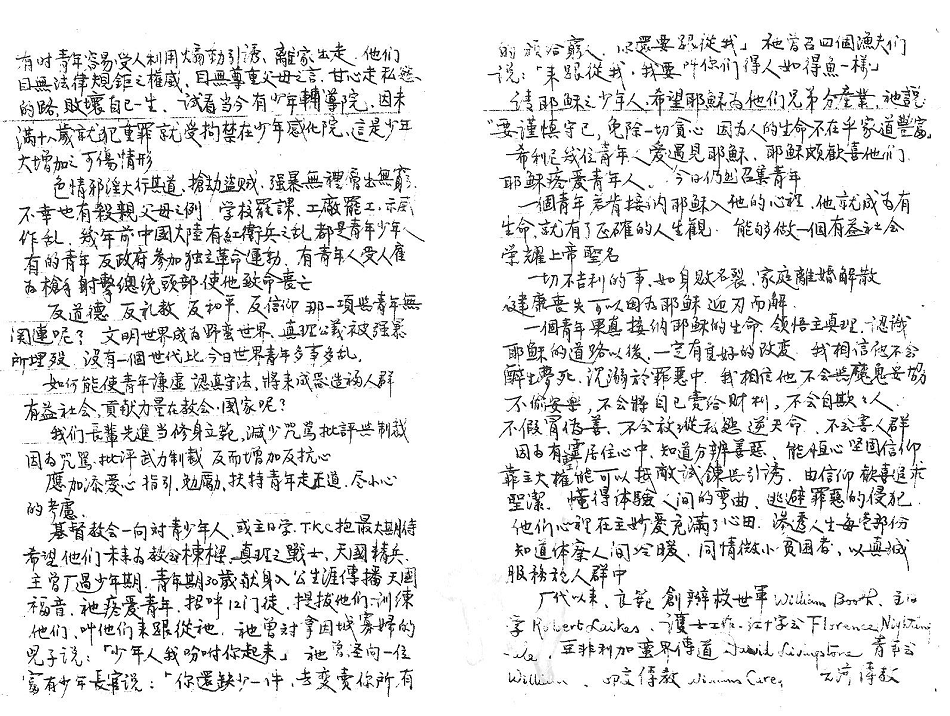 有时青年容易受人利用煽动引诱、離家出走、他们
目無法律規鉅之權威、目無尊重父母之言、甘心走私慾
的路,敗壞自己一生、试看当今有少年輔導院、因未
满十八歲就犯重罪就受拘禁在少年感化院、這是少年
大增加之可傷情形
色情邪淫大行其道,搶劫盗贼、强暴無禮層出無窮
不幸也有殺親父母之例 学校罷課、工廠罷工、示威
作乱、幾年前中國大陸有紅衛兵之乱都是青少年人
有的青年反政府参加独立革命運動、有青年人受人雇
為槍手射擊總统頭部使他致命喪亡
反道德 反礼教 反和平、反信仰 那一項與青年無
関連呢? 文明世界成為野蛮世界、真理公義被强暴
所埋殁、沒有一個世代比今日世界青年多事多乱、
如何能使青年谦虚 認真守法,將来成器造福人群
有益社会,貢献力量在教会,国家呢?
我们長輩先進当修身立範,減少咒罵批評與制裁
因為咒罵批评武力制裁 反而增加反抗心
應加添爱心 指引、勉勵、扶特青年走正道、尽小心
的考慮、
基督教会一向对青少年人、或主日学、TKC抱最大期待
希望他们未来為教会棟樑、真理之戰士、天國精兵、
主曾广過少年期、青年期30歲献身入公生涯傳播天國
福音、祂疼爱青年、招呼12门徒、提拔他们、训練
他们、叫他们来跟從祂、祂曾对拿因城寡婦的
兒子说:「少年人我吩咐你起来」祂曾经向一位
富有少年長官说:「你還缺少一件,去变賣你所有
的 分给窮人、以還要跟從我」祂曾召四個漁夫们
说:「来跟從我,我要叫你们得人如得魚一樣」
有请耶稣之少年人、希望耶稣為他们兄弟分產業、祂説
"要谨慎守己,免除一切貪心 因為人的生命不在乎家道豐富"
希利尼幾位青年人爱遇見耶稣、耶稣頗歡喜他们、
耶稣疼爱青年人、今日仍然召集青年
一個青年若肯接纳耶稣入他的心裡、他就成為有
生命,就有了正確的人生觀、能够做一個有益社会
荣耀上帝聖名
一切不吉利的事,如身败名裂、家庭離婚解散
健康喪失可以因為耶稣迎刃而解、
一個青年果真接纳耶稣的生命、领悟主真理、認識
耶稣的道路以後、一定有良好的改变、我相信他不会
醉生夢死、沉溺於罪惡中、我相信他不会與魔鬼妥協
不偷安樂,不会将自己賣给财利,不会自欺欺人、
不假冒偽善、不会放縱私慾逆天命、不会害人群
因為有聖靈居住心中、知道分辨善惡、能恒心坚固信仰
靠主大權能可以抵敵试鍊與引诱、由信仰歡喜追求
聖潔、懂得体驗人间的弯曲、逃避罪惡的侵犯、
他们心裡在主妙爱充滿了心田、渗透人生每些部份
知道体察人间冷暖、同情微小贫困者、以真诚
服務於人群中
广代以来、良範創辦救世軍William Booth、主日
学Robert Raikes、護士工作、红十字会Florence Nighting
-ale 亚非利加蛮界傳道 David Livingstone 青年会
William、印度傳教 William Carey 傳教